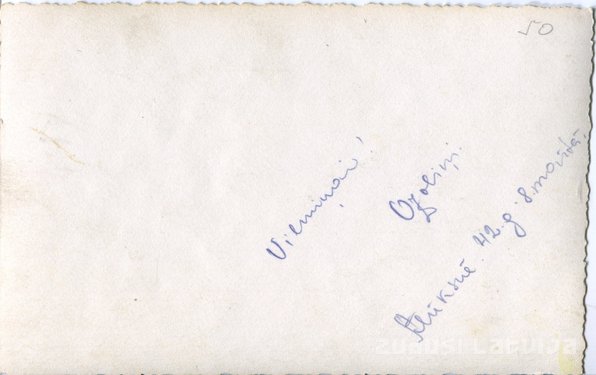 50
Vilmiņai!
Ozoliņi.
Alūksnē. 42.g. 8. martā.
zudusi Latvija